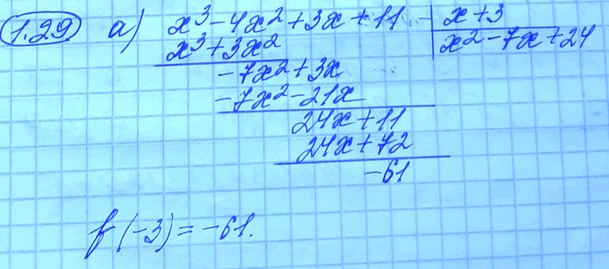 1.29 a) x³ - 4x² + 3x + 11 | x + 3
x³ + 3x² | x² - 7x + 24
-7x² + 3x
-7x² - 21x
24x + 11
24x + 72
-61
f(-3) = -61.